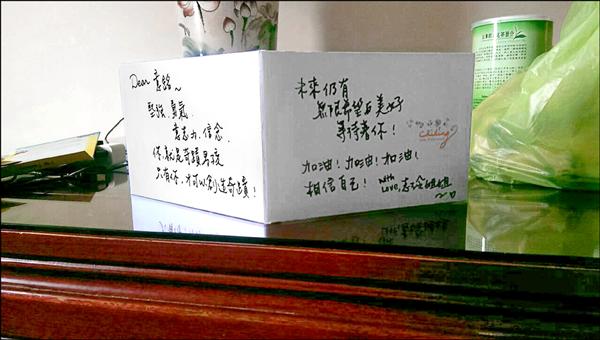 Dear 意銘~
堅強、勇氣、
意志力、信念,
你就是奇蹟男孩
只有你,才可以創造奇蹟!
未來仍有
無限希望與美好
等待著你!
加油!加油!加油!
相信自己!
with
Love, 志玲姐姐
chiling